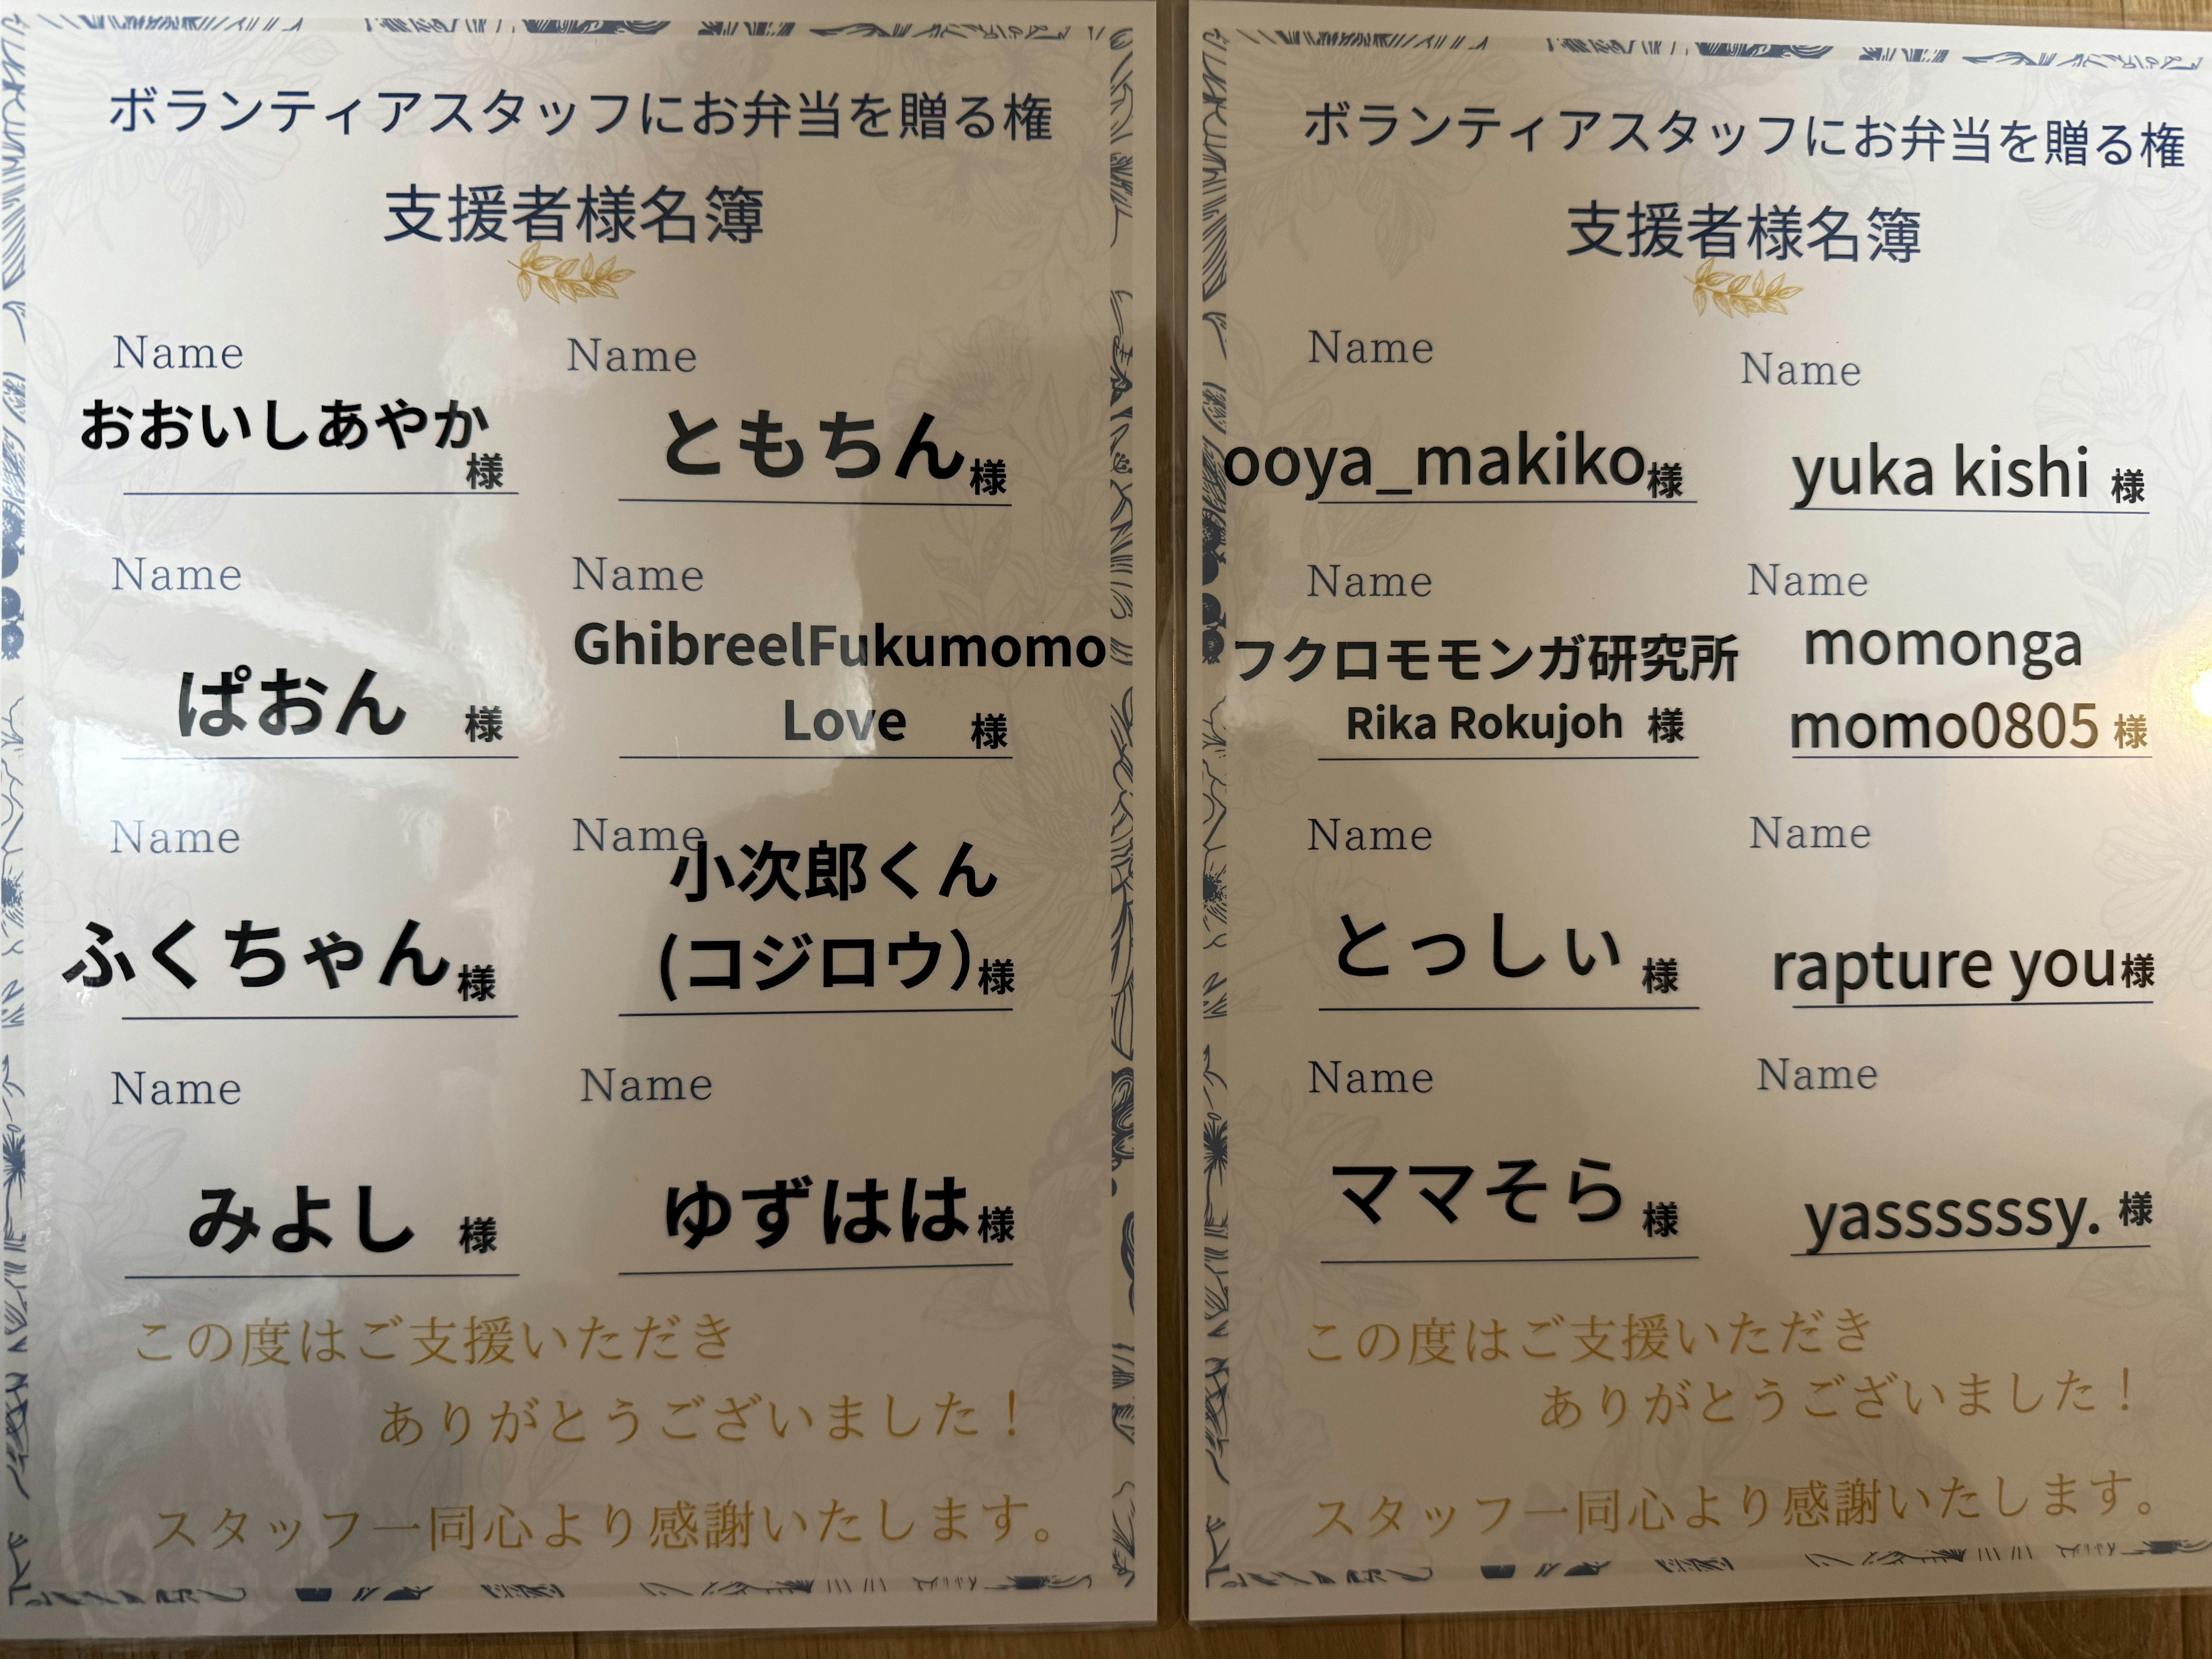 ボランティアスタッフにお弁当を贈る権
支援者様名簿
Name
おおいしあやか
様
Name
ともちん様
Name
ぱおん 様
Name
GhibreelFukumomo
Love 様
Name
ふくちゃん様
Name
小次郎くん
(コジロウ)様
Name
みよし 様
Name
ゆずはは様
この度はご支援いただき
ありがとうございました!
スタッフ一同心より感謝いたします。
ボランティアスタッフにお弁当を贈る権
支援者様名簿
Name
ooya_makiko様
Name
yuka kishi 様
Name
フクロモモンガ研究所
Rika Rokujoh 様
Name
momonga
momo0805 様
Name
とっしぃ 様
Name
rapture you様
Name
ママそら 様
Name
yasssssssy. 様
この度はご支援いただき
ありがとうございました!
スタッフ一同心より感謝いたします。